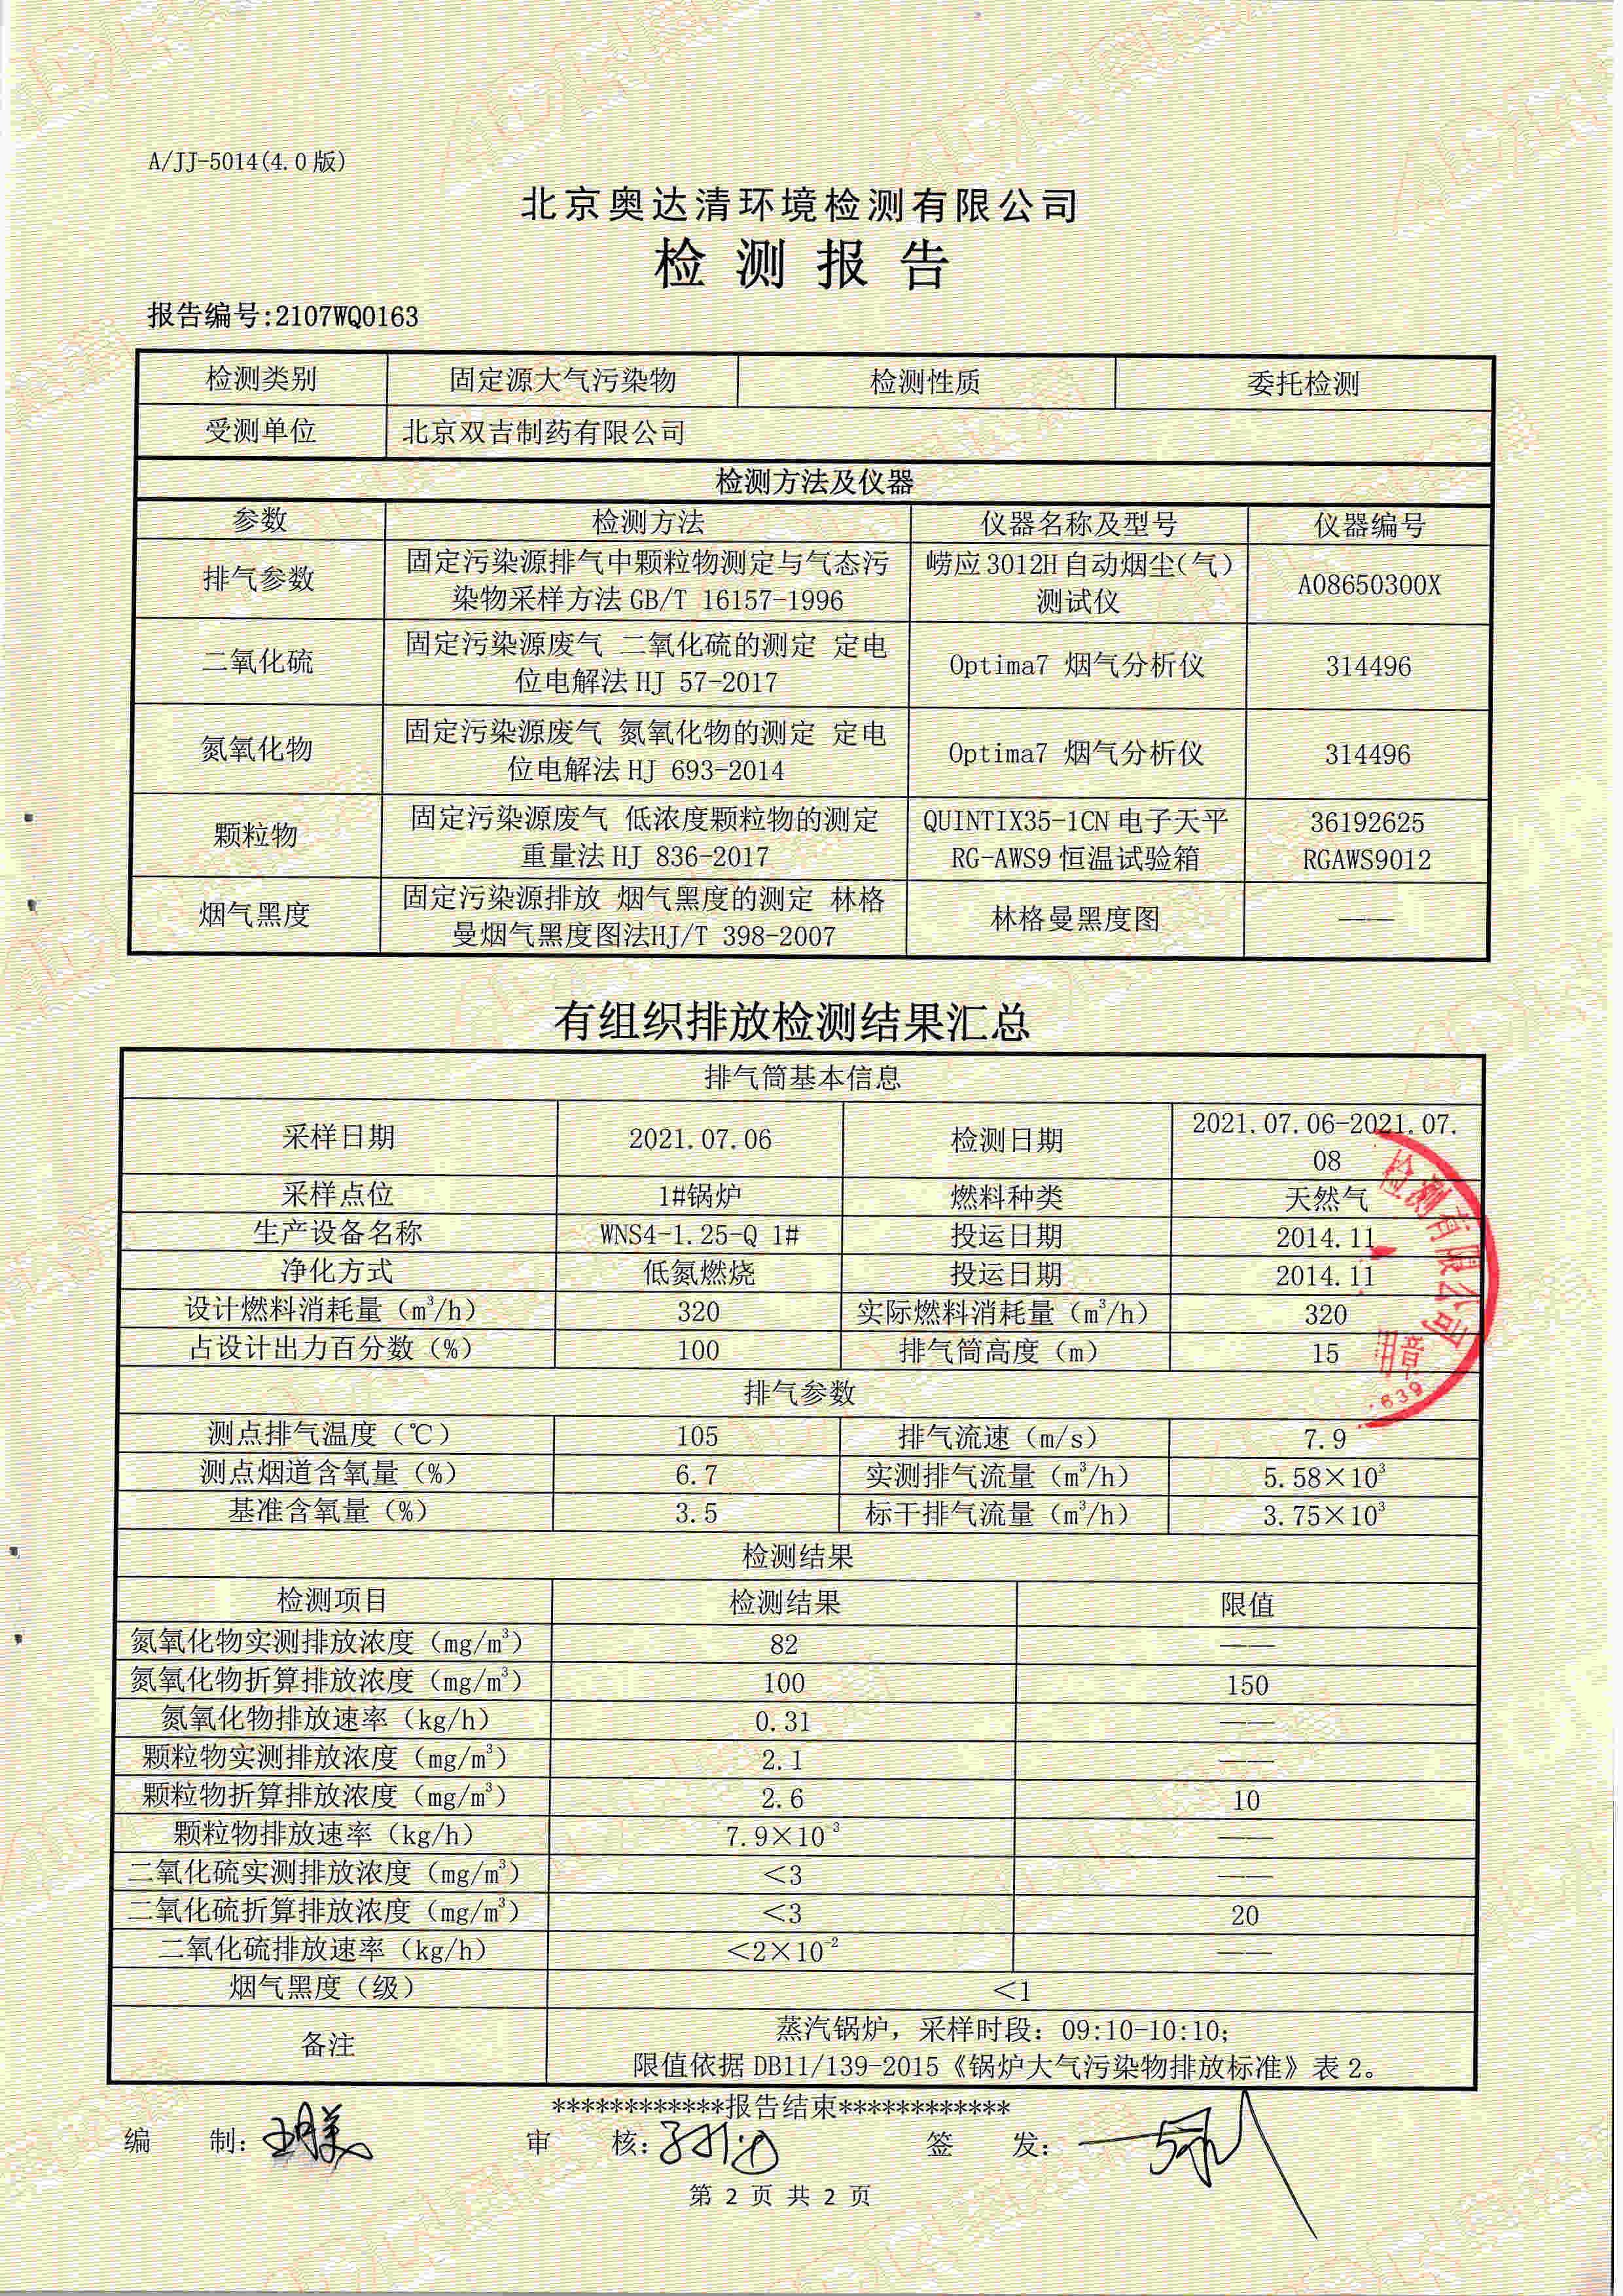 A/JJ-5014(4.0版)
北京奥达清环境检测有限公司
检测报告
报告编号:2107WQ0163
检测类别 固定源大气污染物 检测性质 委托检测
受测单位 北京双吉制药有限公司
检测方法及仪器
参数 检测方法 仪器名称及型号 仪器编号
排气参数 固定污染源排气中颗粒物测定与气态污 崂应3012H自动烟尘(气) A08650300X
染物采样方法GB/T 16157-1996 测试仪
二氧化硫 固定污染源废气 二氧化硫的测定 定电 Optima7 烟气分析仪 314496
位电解法HJ 57-2017
氮氧化物 固定污染源废气 氮氧化物的测定 定电 Optima7 烟气分析仪 314496
位电解法HJ 693-2014
颗粒物 固定污染源废气 低浓度颗粒物的测定 QUINTIX35-1CN电子天平 36192625
重量法HJ 836-2017 RG-AWS9恒温试验箱 RGAWS9012
烟气黑度 固定污染源排放 烟气黑度的测定 林格 林格曼黑度图 ——
曼烟气黑度图法HJ/T 398-2007
有组织排放检测结果汇总
排气筒基本信息
采样日期 2021.07.06 检测日期 2021.07.06-2021.07.
08
采样点位 1#锅炉 燃料种类 天然气
生产设备名称 WNS4-1.25-Q 1# 投运日期 2014.11
净化方式 低氮燃烧 投运日期 2014.11
设计燃料消耗量（m³/h） 320 实际燃料消耗量（m³/h） 320
占设计出力百分数（%） 100 排气筒高度（m） 15
排气参数
测点排气温度（℃） 105 排气流速（m/s） 7.9
测点烟道含氧量（%） 6.7 实测排气流量（m³/h） 5.58×10³
基准含氧量（%） 3.5 标干排气流量（m³/h） 3.75×10³
检测结果
检测项目 检测结果 限值
氮氧化物实测排放浓度（mg/m³） 82 ——
氮氧化物折算排放浓度（mg/m³） 100 150
氮氧化物排放速率（kg/h） 0.31 ——
颗粒物实测排放浓度（mg/m³） 2.1 ——
颗粒物折算排放浓度（mg/m³） 2.6 10
颗粒物排放速率（kg/h） 7.9×10⁻³ ——
二氧化硫实测排放浓度（mg/m³） <3 ——
二氧化硫折算排放浓度（mg/m³） <3 20
二氧化硫排放速率（kg/h） <2×10⁻² ——
烟气黑度（级） <1
备注 蒸汽锅炉，采样时段：09:10-10:10;
限值依据DB11/139-2015《锅炉大气污染物排放标准》表2。
************报告结束************
编 制: 审 核: 签 发:
第 2 页 共 2 页
检测有限公司
用章
639